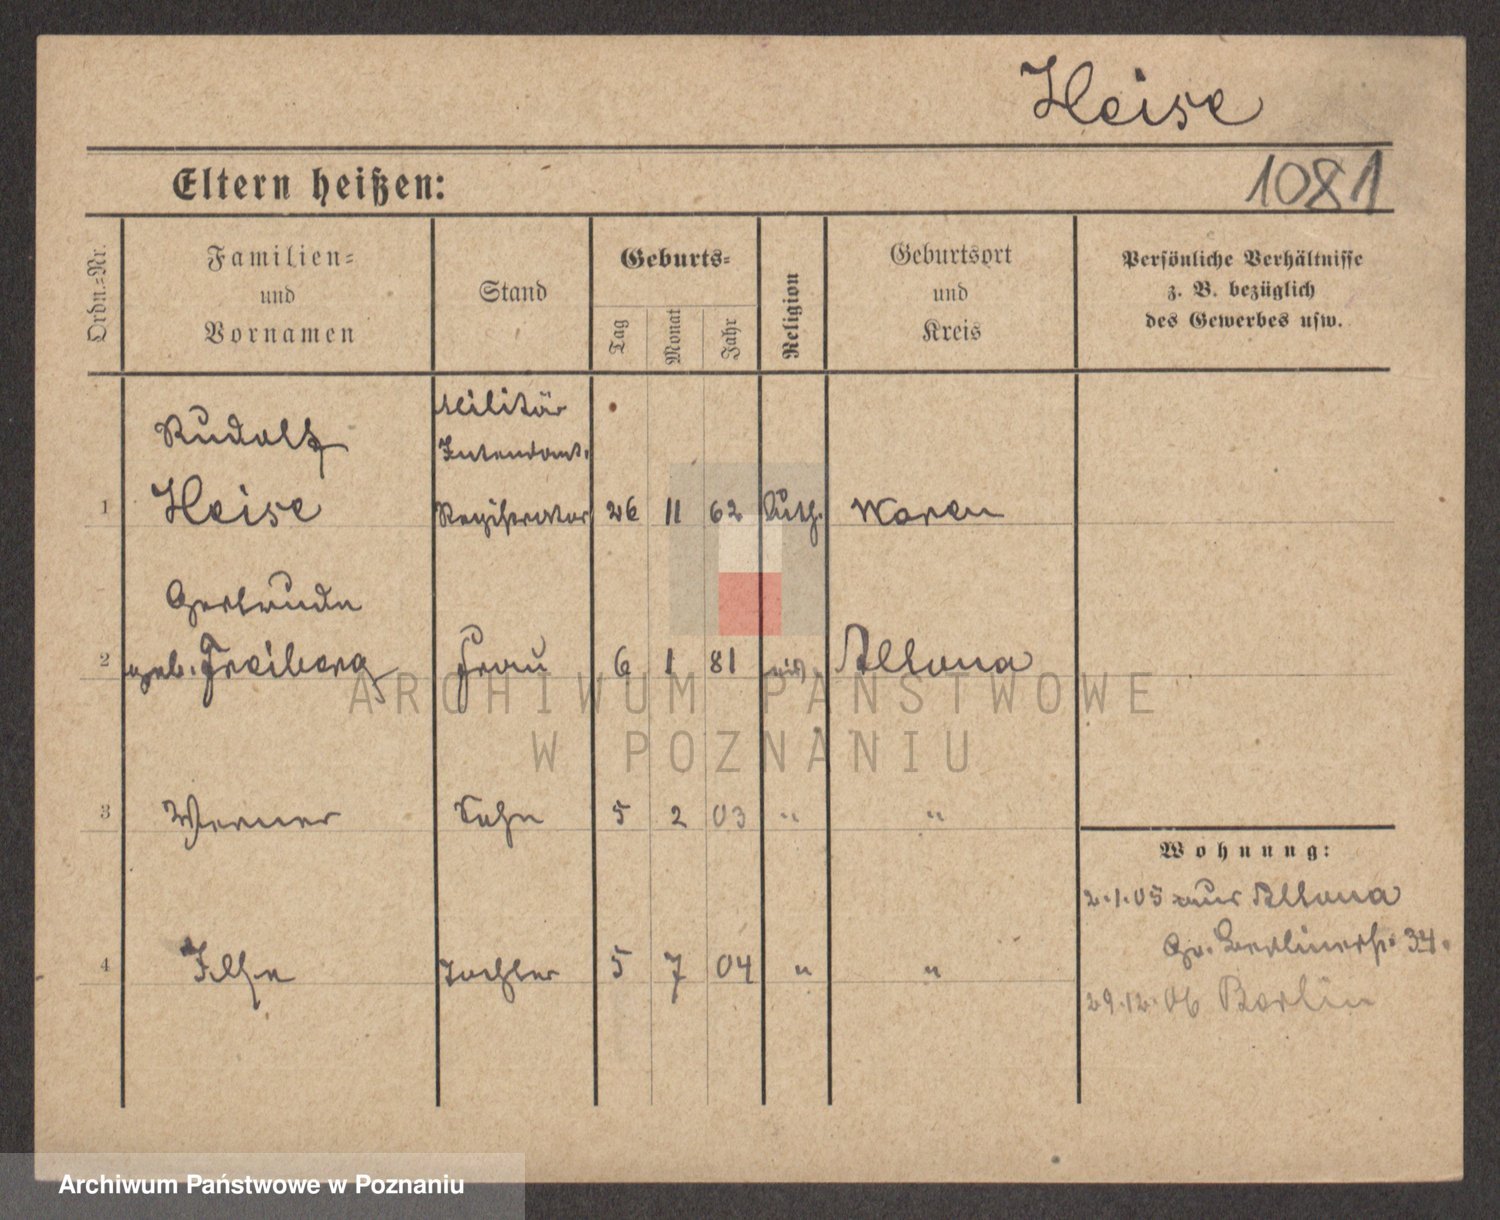 Heise
Eltern heißen:
1081
Ordn.-Nr.
Familien-
und
Vornamen
Stand
Geburts-
Tag
Monat
Jahr
Religion
Geburtsort
und
Kreis
Persönliche Verhältnisse
z. B. bezüglich
des Gewerbes usw.
Rudolf
Militär
Intendant.
1 Heise Registrator 26 11 62 Luth. Waren
Gertrude
2 geb. Freiberg Frau 6 1 81 Altona
3 Werner Sohn 5 2 03 " "
Wohnung:
2.1.05 aus Altona
Gr. Berlinerstr. 34.
4 Ilse Tochter 5 7 04 " "
29.12.06 Berlin
ARCHIWUM PAŃSTWOWE
W POZNANIU
Archiwum Państwowe w Poznaniu